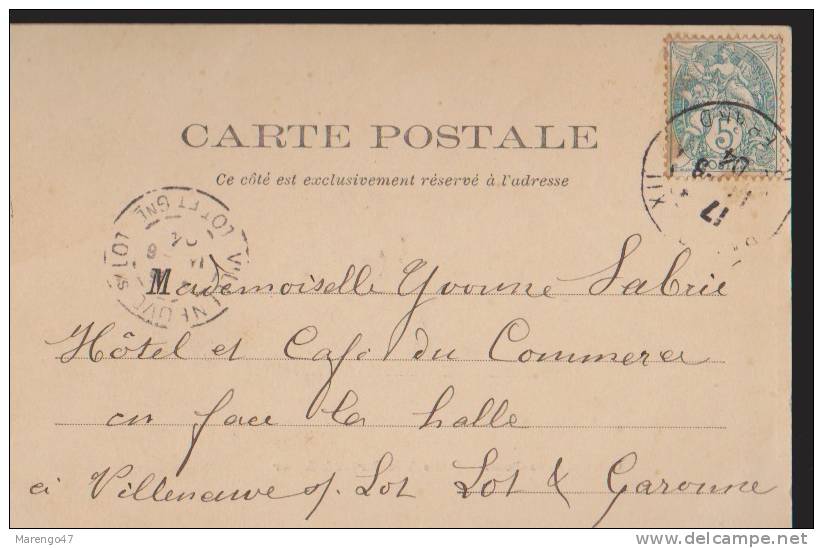 CARTE POSTALE
Ce côté est exclusivement réservé à l'adresse
5c
17
04
XII
VILLENEUVE S/ LOT
LOT ET GNE
Mademoiselle Yvonne Labrie
Hôtel et Café du Commerce
en face la halle
à Villeneuve s/. Lot Lot & Garonne
Marengo47